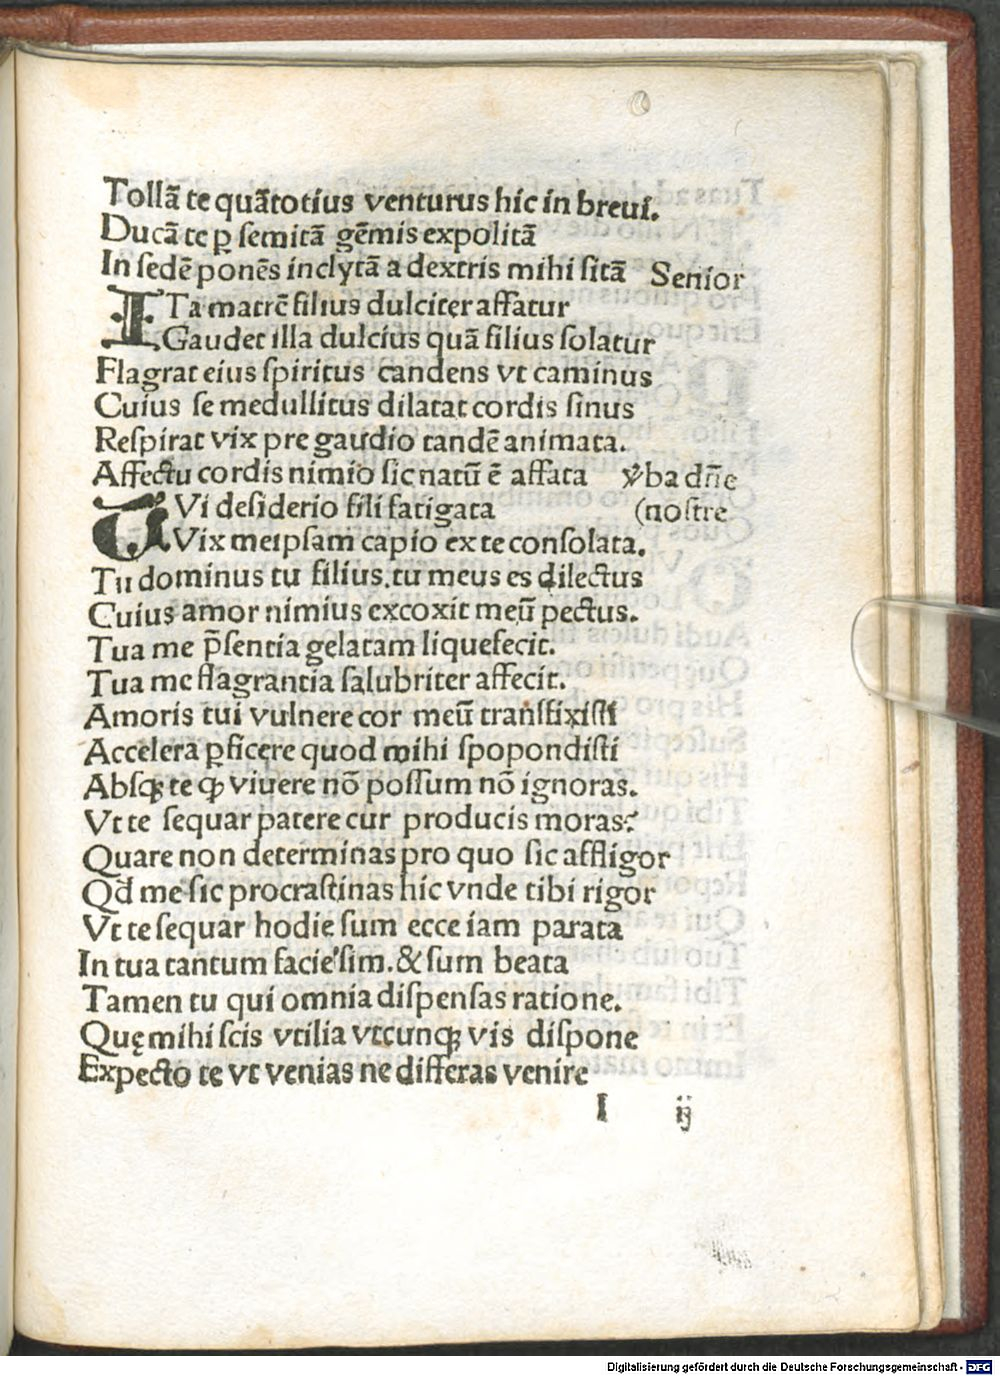 Tollā te quātotius venturus hic in brevi.
Ducā te ꝑ semitā gēmis expolitā
In sedē ponēs inclytā a dextris mihi sitā Senior
ITa matrē filius dulciter affatur
Gaudet illa dulcius quā filius solatur
Flagrat eius spiritus candens vt caminus
Cuius se medullitus dilatat cordis sinus
Respirat vix pre gaudio tandē animata.
Affectu cordis nimio sic natū ē affata v̕ba dn̄e
(nostre
TVi desiderio fili fatigata
Vix meipsam capio ex te consolata.
Tu dominus tu filius.tu meus es dilectus
Cuius amor nimius excoxit meū pectus.
Tua me p̄sentia gelatam liquefecit.
Tua me flagrantia salubriter affecit.
Amoris tui vulnere cor meū transfixisti
Accelera ꝑficere quod mihi spopondisti
Absqꝫ te ꝙ viuere nō possum nō ignoras.
Vt te sequar patere cur producis moras?
Quare non determinas pro quo sic affligor
Qd̄ me sic procrastinas hic vnde tibi rigor
Vt te sequar hodie sum ecce iam parata
In tua tantum facie sim.& sum beata
Tamen tu qui omnia dispensas ratione.
Quę mihi scis vtilia vtcunqꝫ vis dispone
Expecto te vt venias ne differas venire
I ij
Digitalisierung gefördert durch die Deutsche Forschungsgemeinschaft - DFG